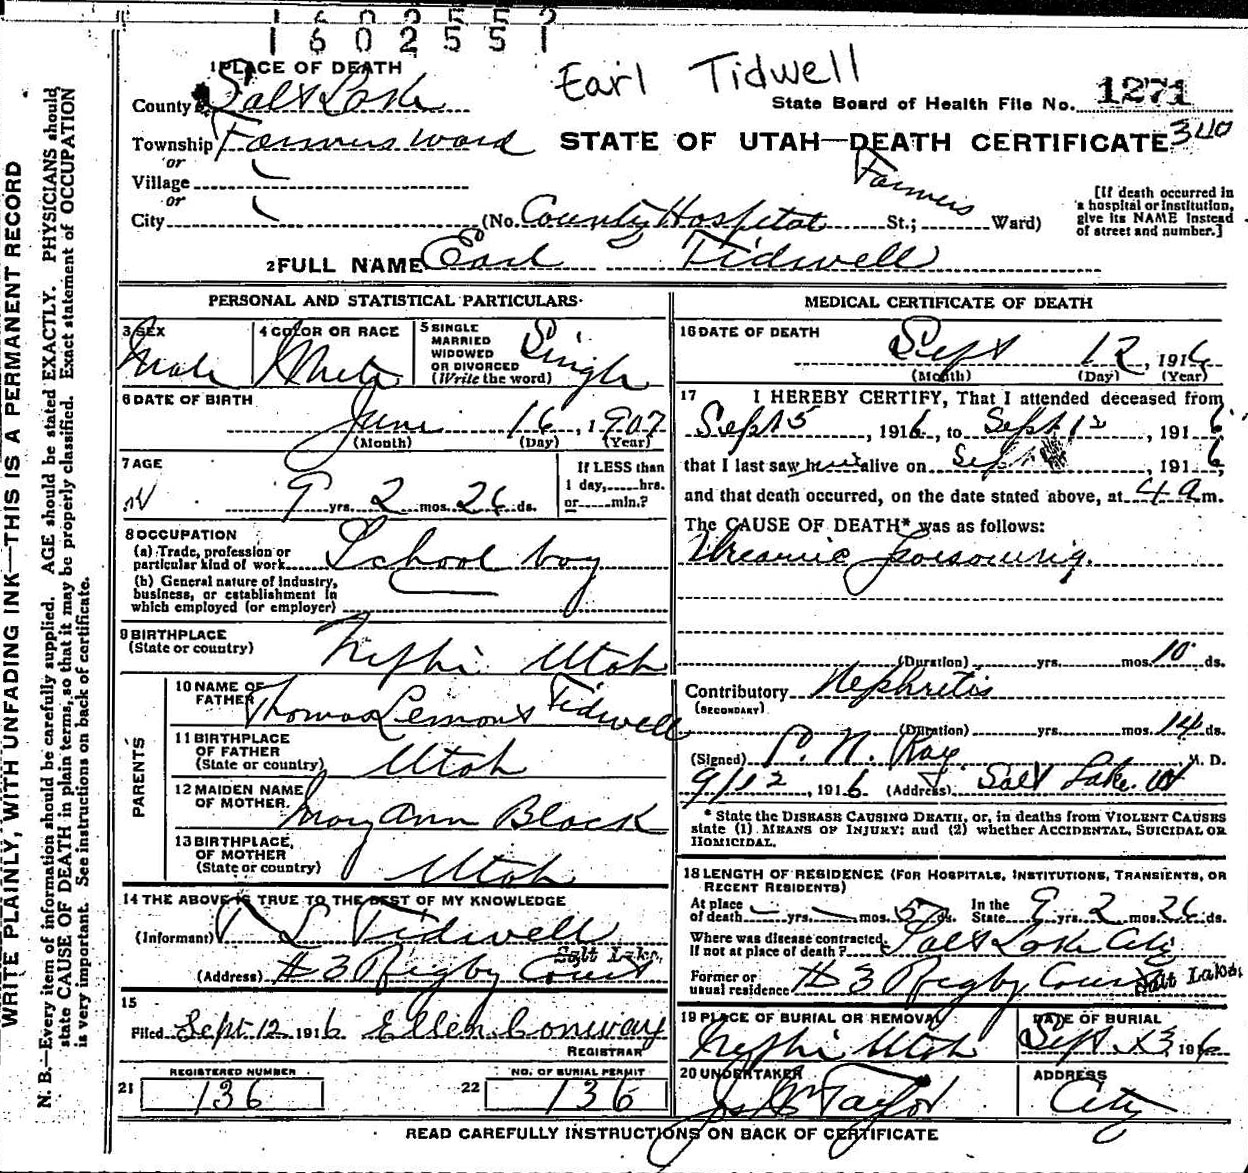 1602551
Earl Tidwell
1 PLACE OF DEATH
County Salt Lake
State Board of Health File No. 1271
Township Farmers Ward
STATE OF UTAH—DEATH CERTIFICATE 340
or
Village
or
City (No. County Hospital St.; Farmers Ward)
[If death occurred in a hospital or institution, give its NAME instead of street and number.]
2 FULL NAME Earl Tidwell
PERSONAL AND STATISTICAL PARTICULARS
3 SEX Male
4 COLOR OR RACE White
5 SINGLE MARRIED WIDOWED OR DIVORCED (Write the word) Single
6 DATE OF BIRTH
June 16, 1907
(Month) (Day) (Year)
7 AGE
9 yrs. 2 mos. 26 ds.
If LESS than 1 day, hrs. or min.?
8 OCCUPATION
(a) Trade, profession or particular kind of work School boy
(b) General nature of industry, business, or establishment in which employed (or employer)
9 BIRTHPLACE (State or country) Nephi Utah
PARENTS
10 NAME OF FATHER Thomas Lemons Tidwell
11 BIRTHPLACE OF FATHER (State or country) Utah
12 MAIDEN NAME OF MOTHER. Mary Ann Black
13 BIRTHPLACE, OF MOTHER (State or country) Utah
14 THE ABOVE IS TRUE TO THE BEST OF MY KNOWLEDGE
(Informant) T L Tidwell
(Address) #3 Rigby Court Salt Lake,
15
Filed Sept. 12 1916 Ellen Conway
REGISTRAR
21 REGISTERED NUMBER 136
22 NO. OF BURIAL PERMIT 136
MEDICAL CERTIFICATE OF DEATH
16 DATE OF DEATH
Sept 12, 1916
(Month) (Day) (Year)
17 I HEREBY CERTIFY, That I attended deceased from
Sept 5, 1916, to Sept 12, 1916,
that I last saw him alive on Sept, 1916,
and that death occurred, on the date stated above, at 4 a m.
The CAUSE OF DEATH* was as follows:
Uraemic poisoning.
(Duration) yrs. mos. 10 ds.
Contributory Nephritis
(SECONDARY)
(Duration) yrs. mos. 14 ds.
(Signed) P. N. Ray. M. D.
9/12, 1916 (Address) Salt Lake. Ut
* State the DISEASE CAUSING DEATH, or, in deaths from VIOLENT CAUSES state (1) MEANS OF INJURY; and (2) whether ACCIDENTAL, SUICIDAL OR HOMICIDAL.
18 LENGTH OF RESIDENCE (FOR HOSPITALS, INSTITUTIONS, TRANSIENTS, OR RECENT RESIDENTS)
At place of death — yrs. — mos. ds. In the State 9 yrs. 2 mos. 26 ds.
Where was disease contracted, if not at place of death? Salt Lake City
Former or usual residence #3 Rigby Court Salt Lake,
19 PLACE OF BURIAL OR REMOVAL Nephi Utah
DATE OF BURIAL Sept. 13, 1916
20 UNDERTAKER Taylor
ADDRESS City
READ CAREFULLY INSTRUCTIONS ON BACK OF CERTIFICATE
WRITE PLAINLY, WITH UNFADING INK—THIS IS A PERMANENT RECORD
N. B.—Every item of information should be carefully supplied. AGE should be stated EXACTLY. PHYSICIANS should
state CAUSE OF DEATH in plain terms, so that it may be properly classified. Exact statement of OCCUPATION
is very important. See instructions on back of certificate.